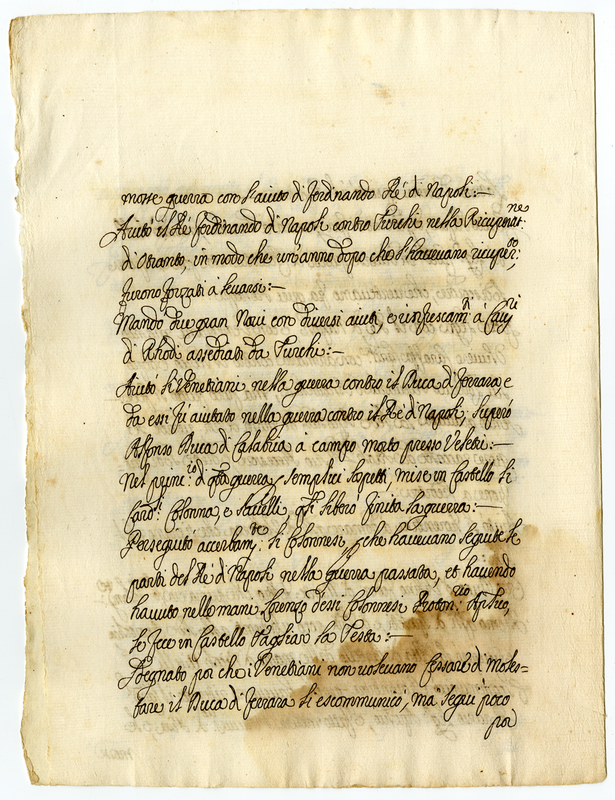 mosse guerra con l'aiuto di Ferdinando Ré di Napoli:—
Aiutó il Ré Ferdinando di Napoli contro Turchi nella Ricuperat.ne
d'Otranto, in modo che un'anno dopo che l'haveuano ricuper.to,
furono forzati á leuarsi:—
Mandó due gran Naui con diuersi aiuti, e rinfrescam.ti á Cau.ri
di Rhodi assediati da Turchi:—
Aiutó li Venetiani nella guerra contro il Duca di Ferrara, e
da essi fu aiutato nella guerra contro il Ré di Napoli, superó
Alfonso Duca di Calabria á campo morto presso Veletri:—
Nel princ.io di q'ta guerra p semplici sospetti, mise in Castello li
Card.li Colonna, e Sauelli, q'li liberó finita la guerra:—
Perseguitó acerbam.te li Colonnesi, p che haueuano seguite le
parti del Ré di Napoli nella guerra passata, et hauendo
hauuto nelle mani Lorenzo d'essi Colonnesi Proton.rio Ap'lico,
le fece in Castello tagliar la Testa:—
Sdegnato poi che i Venetiani non uoleuano cessare di moles=
tare il Duca di Ferrara li escommunicó, ma segui poco
poi